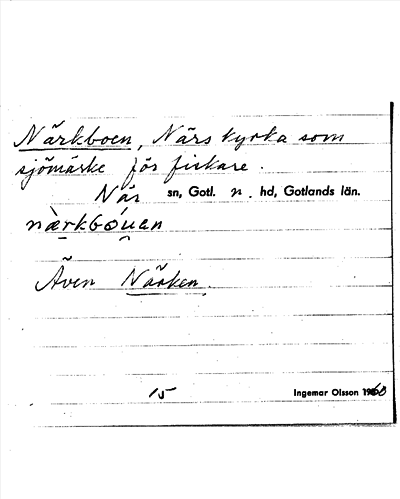 Närkboen, Närs kyrka som
sjömärke för fiskare.
När sn, Gotl. n. hd, Gotlands län.
nærkbóuen
Även Närken.
15 Ingemar Olsson 1960